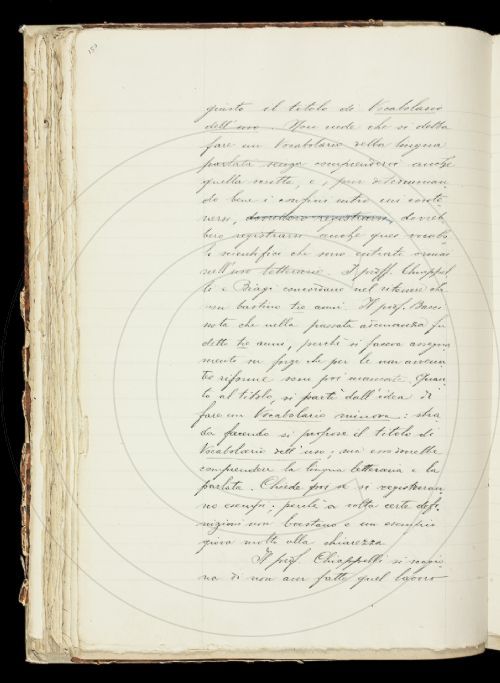 151
giusto il titolo di Vocabolario
dell'uso. Non vede che si debba
fare un Vocabolario della lingua
parlata senza comprenderci anche
quella scritta, e, pur determinan-
do bene i confini entro cui conte-
nersi, dovreb-
bero registrarsi anche quei vocabo-
li scientifici che sono entrati ormai
nell'uso letterario. I proff. Chiappel-
li e Biagi concordano nel ritenere che
non bastino tre anni. Il prof. Bacci
nota che nella passata adunanza fu
detto tre anni, perché si faceva assegna-
mento su forze che per le non avvenu-
te riforme sono poi mancate. Quan-
to al titolo, si partì dall'idea di
fare un Vocabolario minore: stra-
da facendo si propose il titolo di
Vocabolario dell'uso; ma esso dovrebbe
comprendere la lingua letteraria e la
parlata. Chiede poi se si registreran-
no esempi; perché a volta certe defi-
nizioni non bastano e un esempio
giova molto alla chiarezza.
Il prof. Chiappelli si ramma-
rica di non aver fatto quel lavoro